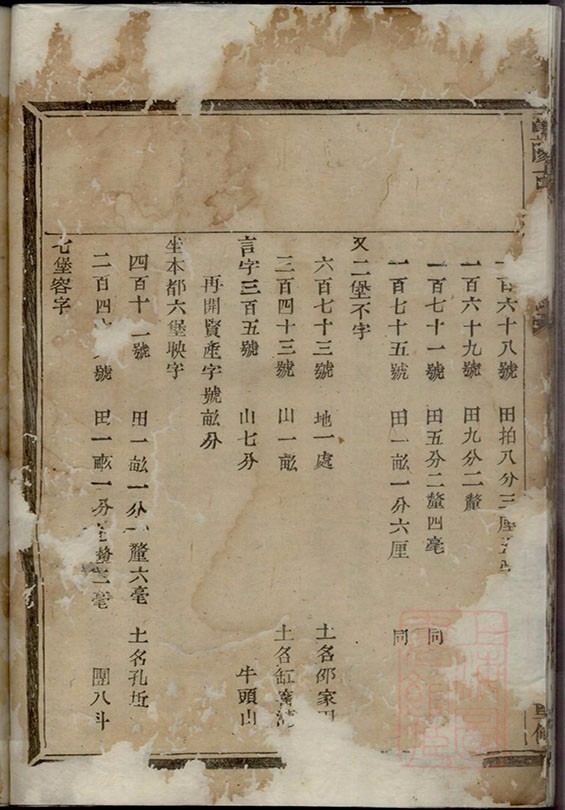 百六十八號 田拍八分三
一百六十九號 田九分二釐
一百七十一號 田五分二釐四毫 同
一百七十五號 田一畝一分六厘 同
又二堡不字
六百七十三號 地一處 土名邵家
三百四十三號 山一畝 土名缸
言字三百五號 山七分 牛頭山
再開賢產字號畝分
坐本都六堡映字
四百十一號 田一畝一分 釐六毫 土名孔近
二百四 號 田一畝一分 釐 毫 團八斗
七堡容字